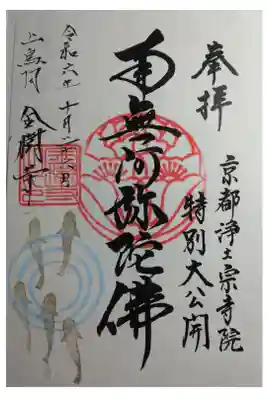 奉拝
京都浄土宗寺院
特別大公開
南無阿弥陀佛
令和六年十月二十六日
上鳥羽